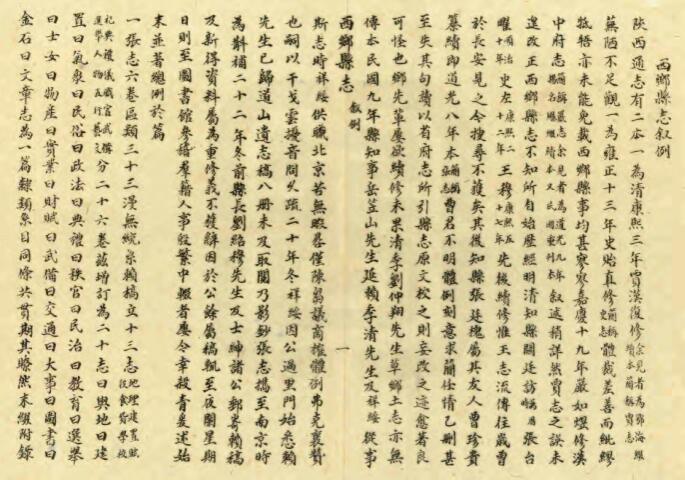 西鄉縣志叙例
陝西通志有二本一為清康熙三年賈漢復修余見者為鄠海繼續本簡稱賈志
蕪陋不足觀一為雍正十三年史貽直修簡稱史志體裁差善而紕繆
牴牾亦未能免載西鄉縣事均甚寥寥嘉慶十九年嚴如熤修漢
中府志簡稱嚴志余見者為道光九年楊名颺續本又民國重刊本叙述稍詳然賈志之誤未
遑改正西鄉縣志不知所自始歷經明清知縣關廷訪張台
曜順治十年史左康熙二十二年王穆康熙五十七年先後續修惟王志流傳往歲曾
於長安見之今搜尋不獲矣其後知縣張廷槐屬其友人曹珍貴
纂續即道光八年本簡稱張志曹君不明體例刻意求簡任情乙刪甚
至失其句讀以省府志所引縣志原文校之則妄改之迹愈著良
可怪也鄉先輩屢欲續修未果清季劉仲翔先生草鄉土志亦無
傳本民國九年縣知事岳荳山先生延賴季清先生及祥綬從事
西鄉縣志 叙例 一
斯志時祥綬供職北京苦無暇晷僅陳芻議商搉體例弗克襄贊
也嗣以干戈雲擾音問久疏二十年冬祥綬因公過里門始悉賴
先生已歸道山遺志稿八冊未及取閱乃影鈔張志攜至南京時
為斠補二十二年冬前縣長劉紹穆先生及士紳諸公郵寄賴稿
及新得資料屬為重修義不獲辭因於公餘屬稿輒至夜闌星期
日則至圖書館參稽羣籍人事殷繁中輟者屢今幸殺青爰述始
末並著總例於篇
一張志六卷區類三十三漫無統系賴稿立十三志地理建置賦役食貨學校
祀典禮儀職官武備選舉人物五行藝文分二十六卷茲增訂為二十志曰輿地曰建
置曰氣象曰民俗曰政法曰典禮曰秩官曰民治曰教育曰選舉
曰士女曰物產曰實業曰財賦曰武備曰交通曰大事曰圖書曰
金石曰文章志為一篇隸類系目同條共貫期其瞭然末綴附錄